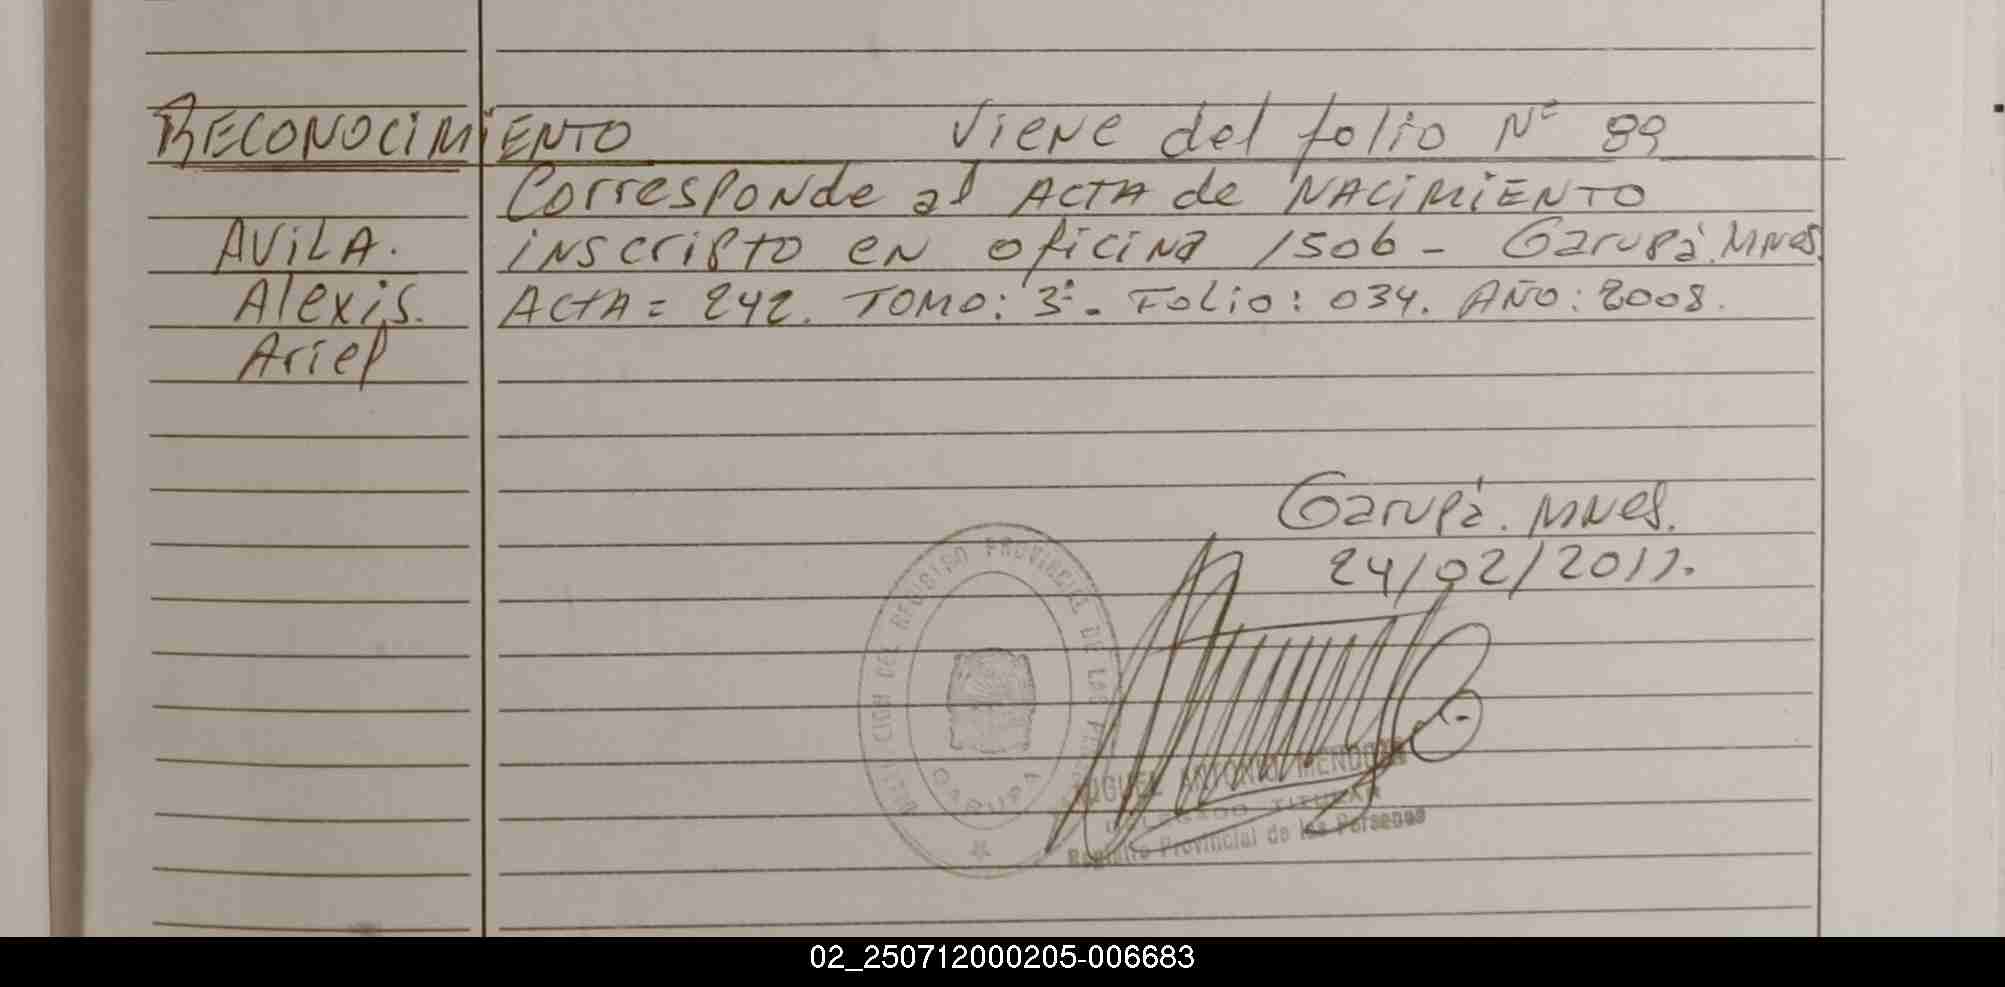 RECONOCIMIENTO Viene del folio Nº 89
Corresponde al ACTA de NACIMIENTO
AVILA. inscripto en oficina 1506 - Garupá. MNes.
Alexis. ACTA = 242. TOMO: 3º - Folio: 034. AÑO: 2008.
Ariel
Garupá. MNes.
24/02/2011.
CION DEL REGISTRO PROVINCIAL DE LAS
GARUPA
MIGUEL ANTONIO MENDOZA
DELEGADO TITULAR
Registro Provincial de las Personas
02_250712000205-006683